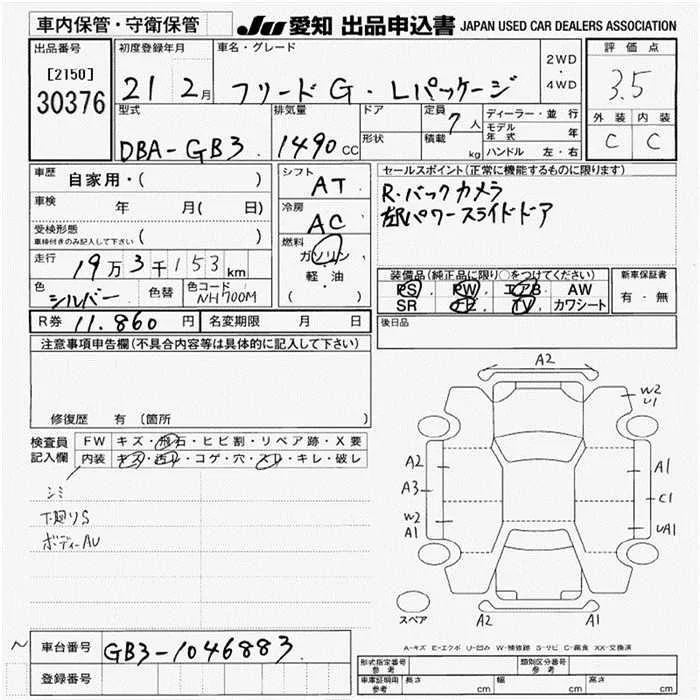 車内保管・守衛保管
JU 愛知 出品申込書 JAPAN USED CAR DEALERS ASSOCIATION
出品番号
[2150]
30376
初度登録年月
21 2月
車名・グレード
フリード G・Lパッケージ
2WD
・
4WD
評価点
3.5
外装 内装
C C
型式
DBA-GB3
排気量
1490 CC
ドア
形状
定員
7人
積載
kg
ディーラー・並行
モデル年式 年
ハンドル 左・右
車歴
自家用・( )
車検
年 月( 日)
受検形態
車検付きのみ記入して下さい ( )
走行
19万3千153km
色
シルバー
色替
色コード
NH700M
シフト
AT
冷房
AC
燃料
ガソリン
軽・油
( )
セールスポイント(正常に機能するものに限ります)
R・バックカメラ
左Rパワースライドドア
装備品(純正品に限り○をつけてください)
PS PW エアB AW
SR ナビ TV カワシート
新車保証書
有・無
後日品
R券 11,860円
名変期限 月 日
注意事項申告欄(不具合内容等は具体的に記入して下さい)
修復歴 有(箇所 )
検査員
記入欄
FW キズ・飛石・ヒビ割・リペア跡・X要
内装 キズ・汚れ・コゲ・穴・スレ・キレ・破レ
シミ
下廻りS
ボディーAU
A2
W2
U1
A2
A3
W2
A1
A1
C1
UA1
スペア
A2
A1
A-キズ E-エクボ U-凹み W-補修跡 S-サビ C-腐食 XX-交換済
車台番号
GB3-1046883
登録番号
形式指定番号
参考
類別区分番号
参考
車庫証明用
参考
長さ cm 幅 cm 高さ cm